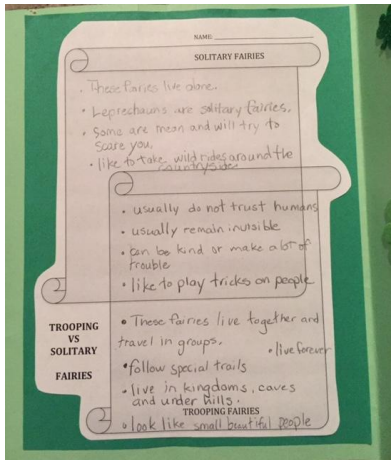 NAME:
SOLITARY FAIRIES
• These fairies live alone.
• Leprechauns are solitary fairies.
• Some are mean and will try to
scare you.
• like to take wild rides around the
countryside.
• usually do not trust humans
• usually remain invisible
• can be kind or make a lot of
trouble
• like to play tricks on people
TROOPING
VS
SOLITARY
FAIRIES
• These fairies live together and
travel in groups.
• live forever
• follow special trails
• live in kingdoms, caves
and under hills.
TROOPING FAIRIES
• look like small beautiful people